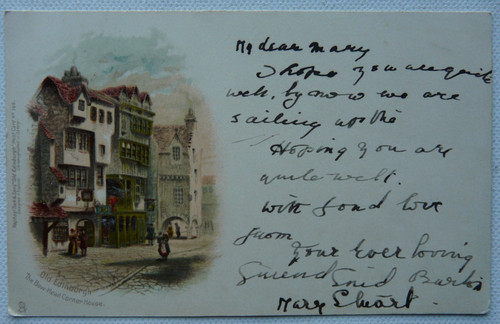 My dear Mary
I hope you are quite
well, by now we are
sailing up the
Hoping you are
quite well.
with fond love
from
Your Ever loving
friend Enid
Mary Stuart.
Old Edinburgh
The Bow Head Corner House.